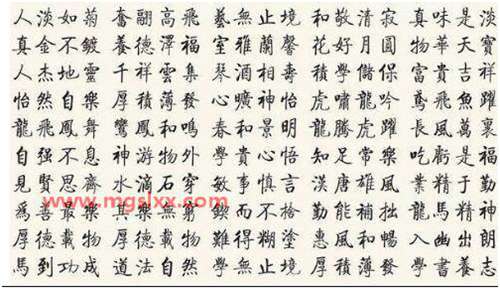 人淡如菊 奮翮高飛 藝無止境 和敬清寂 真味是淡
真金不鍍 養德澤福 室雅蘭馨 花好月圓 物華天寶
人杰地靈 千祥雲集 琴 學儲 富貴吉祥
怡然自樂 厚積薄發 曠神怡 虎嘯龍吟 鳶飛魚躍
龍飛鳳舞 鸞鳳和鳴 春和景明 龍騰虎躍 長風萬裏
自强不息 神游物外 學貴心悟 知足常樂 吃虧是福
見賢思齊 水滴石穿 敏事慎言 漢唐雄風 業精于勤
www.mgslxx.com
爲善最樂 其樂無窮 鍥而不 勤能補拙 龍馬精神
厚德載物 厚德載物 難得糊塗 惠風和暢 入幽出朗
馬到功成 道法自然 學無止境 厚積薄發 學書養志